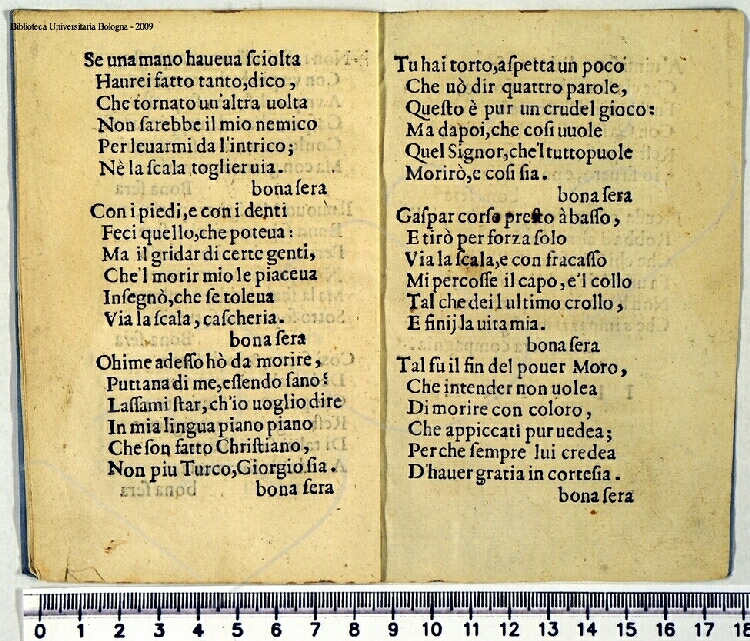 Biblioteca Universitaria Bologna - 2009
Se una mano haueua ſciolta
Haurei fatto tanto, dico,
Che tornato un'altra uolta
Non ſarebbe il mio nemico
Per leuarmi da l'intrico;
Nè la ſcala toglieruia.
bona ſera
Con i piedi, e con i denti
Feci quello, che poteua:
Ma il gridar di certe genti,
Che'l morir mio le piaceua
Inſegnò, che ſe toleua
Via la ſcala, caſcheria.
bona ſera
Ohime adeſſo hò da morire,
Puttana di me, eſſendo ſano!
Laſſami ſtar, ch'io uoglio dire
In mia lingua piano piano
Che ſon fatto Chriſtiano,
Non piu Turco, Giorgio ſia.
bona ſera
Tu hai torto, aſpetta un poco
Che uò dir quattro parole,
Queſto è pur un crudel gioco:
Ma dapoi, che coſi uuole
Quel Signor, che'l tutto puole
Morirò, e coſi ſia.
bona ſera
Gaſpar corſe preſto à baſſo,
E tirò per forza ſolo
Via la ſcala, e con fracaſſo
Mi percoſſe il capo, e'l collo
Tal che dei l ultimo crollo,
E finij la uita mia.
bona ſera
Tal fu il fin del pouer Moro,
Che intender non uolea
Di morire con coloro,
Che appiccati pur uedea;
Perche ſempre lui credea
D'hauer gratia in corteſia.
bona ſera
0 1 2 3 4 5 6 7 8 9 10 11 12 13 14 15 16 17 18